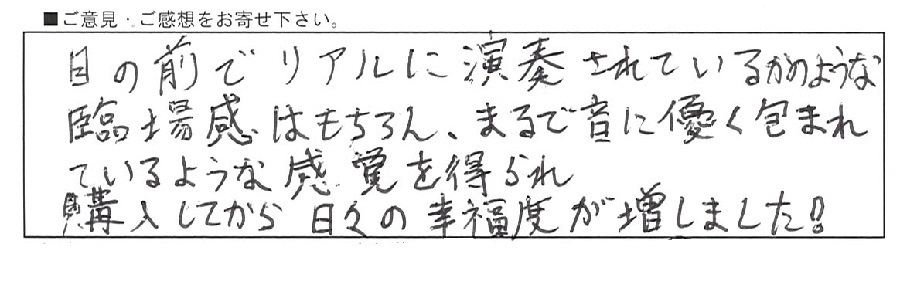 ■ご意見・ご感想をお寄せ下さい。
目の前でリアルに演奏されているかのような
臨場感はもちろん、まるで音に優く包まれ
ているような感覚を得られ
購入してから日々の幸福度が増しました!